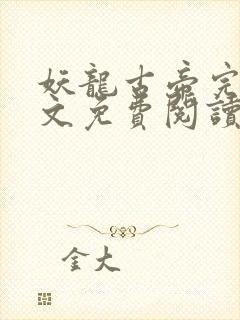 妖龍古帝完
文免費閱讀
金大